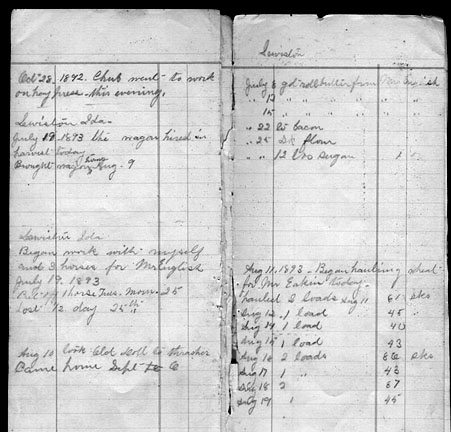 Oct 28, 1892. Chub went to work
on hay press this evening.
Lewiston Ida-
July 19 1893 the wagon hired in
harvest today
Brought wagon home Aug. 9
Lewiston Ida
Began work with myself
and 3 horses for Mr English
July 19. 1893
1 horse Tues. Morn. 25
lost 1/2 day 25th
Aug 10 took Old Doll to thrasher
Came home Sept 6
Lewiston
July 8 roll butter from Mr English
" 12 " " " " "
" 15 " " " " "
" 22 lb bacon
" 25 flour
" " 12 lbs sugar
Aug 11. 1893 - Began hauling wheat
for Mr Eakin today
hauled 2 loads Aug 11 61 sks
Aug 12 - 1 load 45 "
Aug 14 1 load 40
Aug 15 1 load 43
Aug 16 2 loads 86 sks
Aug 17 1 " 43
Aug 18 2 67
19 1 45